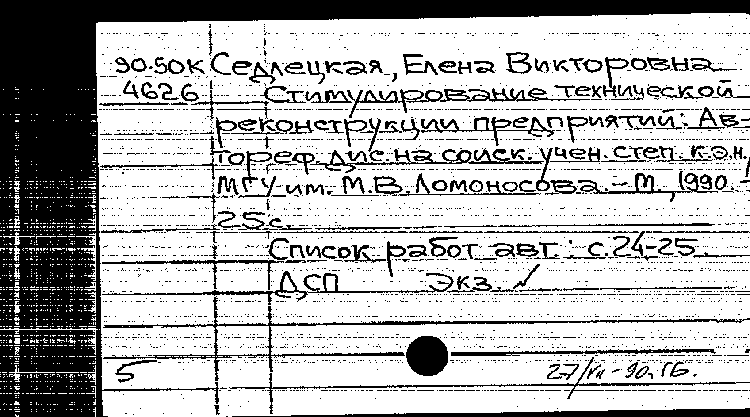 90.50К Седлецкая, Елена Викторовна
4626 Стимулирование технической
реконструкции предприятий: Ав-
тореф. дис. на соиск. учен. степ. к.э.н./
МГУ им. М.В. Ломоносова. – М., 1990. –
25 с.
Список работ авт.: с. 24-25.
ДСП Экз. ✓
5
27/VII - 90. ГБ.